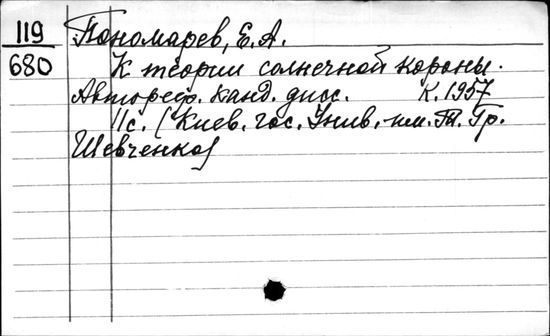 119
680
Пономарев, Е.А.
К теории солнечной короны.
Автореф. канд. дисс. К. 1957
11с. (Киев. гос. Унив. им. Т. Гр.
Шевченко)